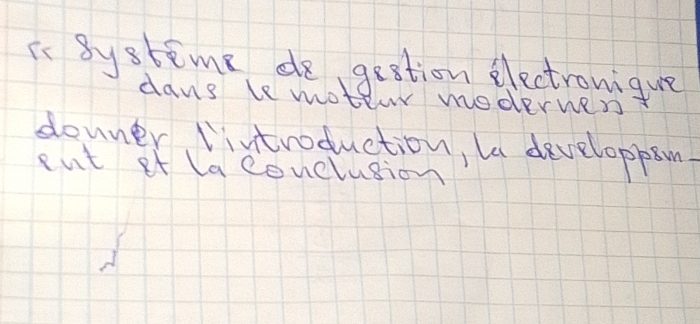 « système de gestion électronique
dans le moteur moderne »
donner l'introduction, la developpem-
ent et la conclusion